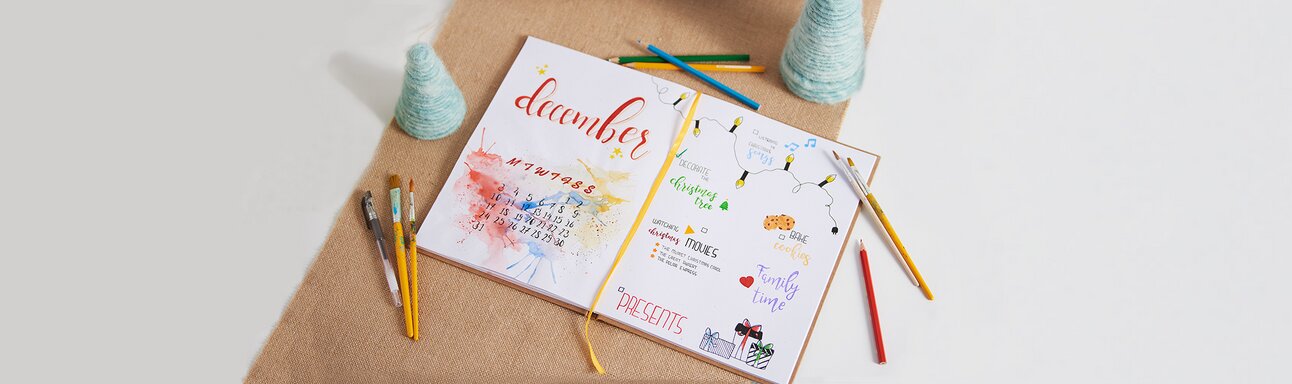 december
M T W T F S S
1 2
3 4 5 6 7 8 9
10 11 12 13 14 15 16
17 18 19 20 21 22 23
24 25 26 27 28 29 30
31
DECORATE
THE
christmas
tree
LISTENING
TO
CHRISTMAS
Songs
WATCHING
christmas MOVIES
THE MUPPET CHRISTMAS CAROL
THE GREAT SWEATY
THE POLAR EXPRESS
BAKE
cookies
Family
time
PRESENTS